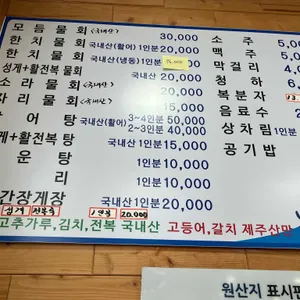 모듬물회 (국내산) 30,000
한치물회 국내산(활어)1인분 20,000
한치물회 국내산(냉동)1인분
성게+활전복 물회 국내산 20,000
소라물회 (국내산) 15,000
자리물회 (국내산) 15,000
어탕 국내산(활어) 3~4인분 50,000
2~3인분 40,000
게+활전복 탕 1인분 15,000
운탕 1인분 10,000
리 1인분 10,000
간장게장 1인분 20,000
성게 전복죽 1인분 20,000
고추가루,김치,전복 국내산 고등어,갈치 제주산만
소주
맥주
막걸리 4
청하 6
복분자
음료수 2
상차림
공기밥
원산지 표시판